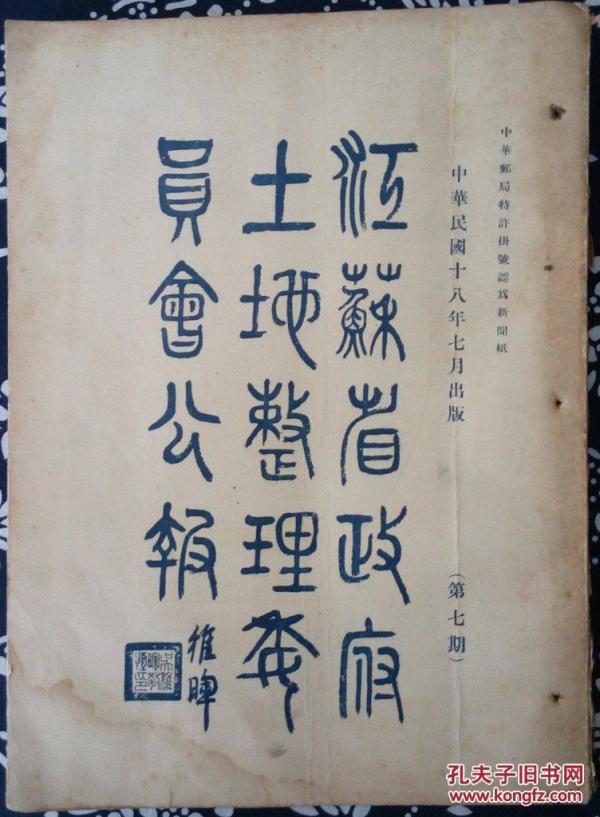 中華郵局特許掛號認爲新聞紙
中華民國十八年七月出版
(第七期)
江蘇省政府
土地整理委
員會公報
稚暉
孔夫子旧书网
www.kongfz.com